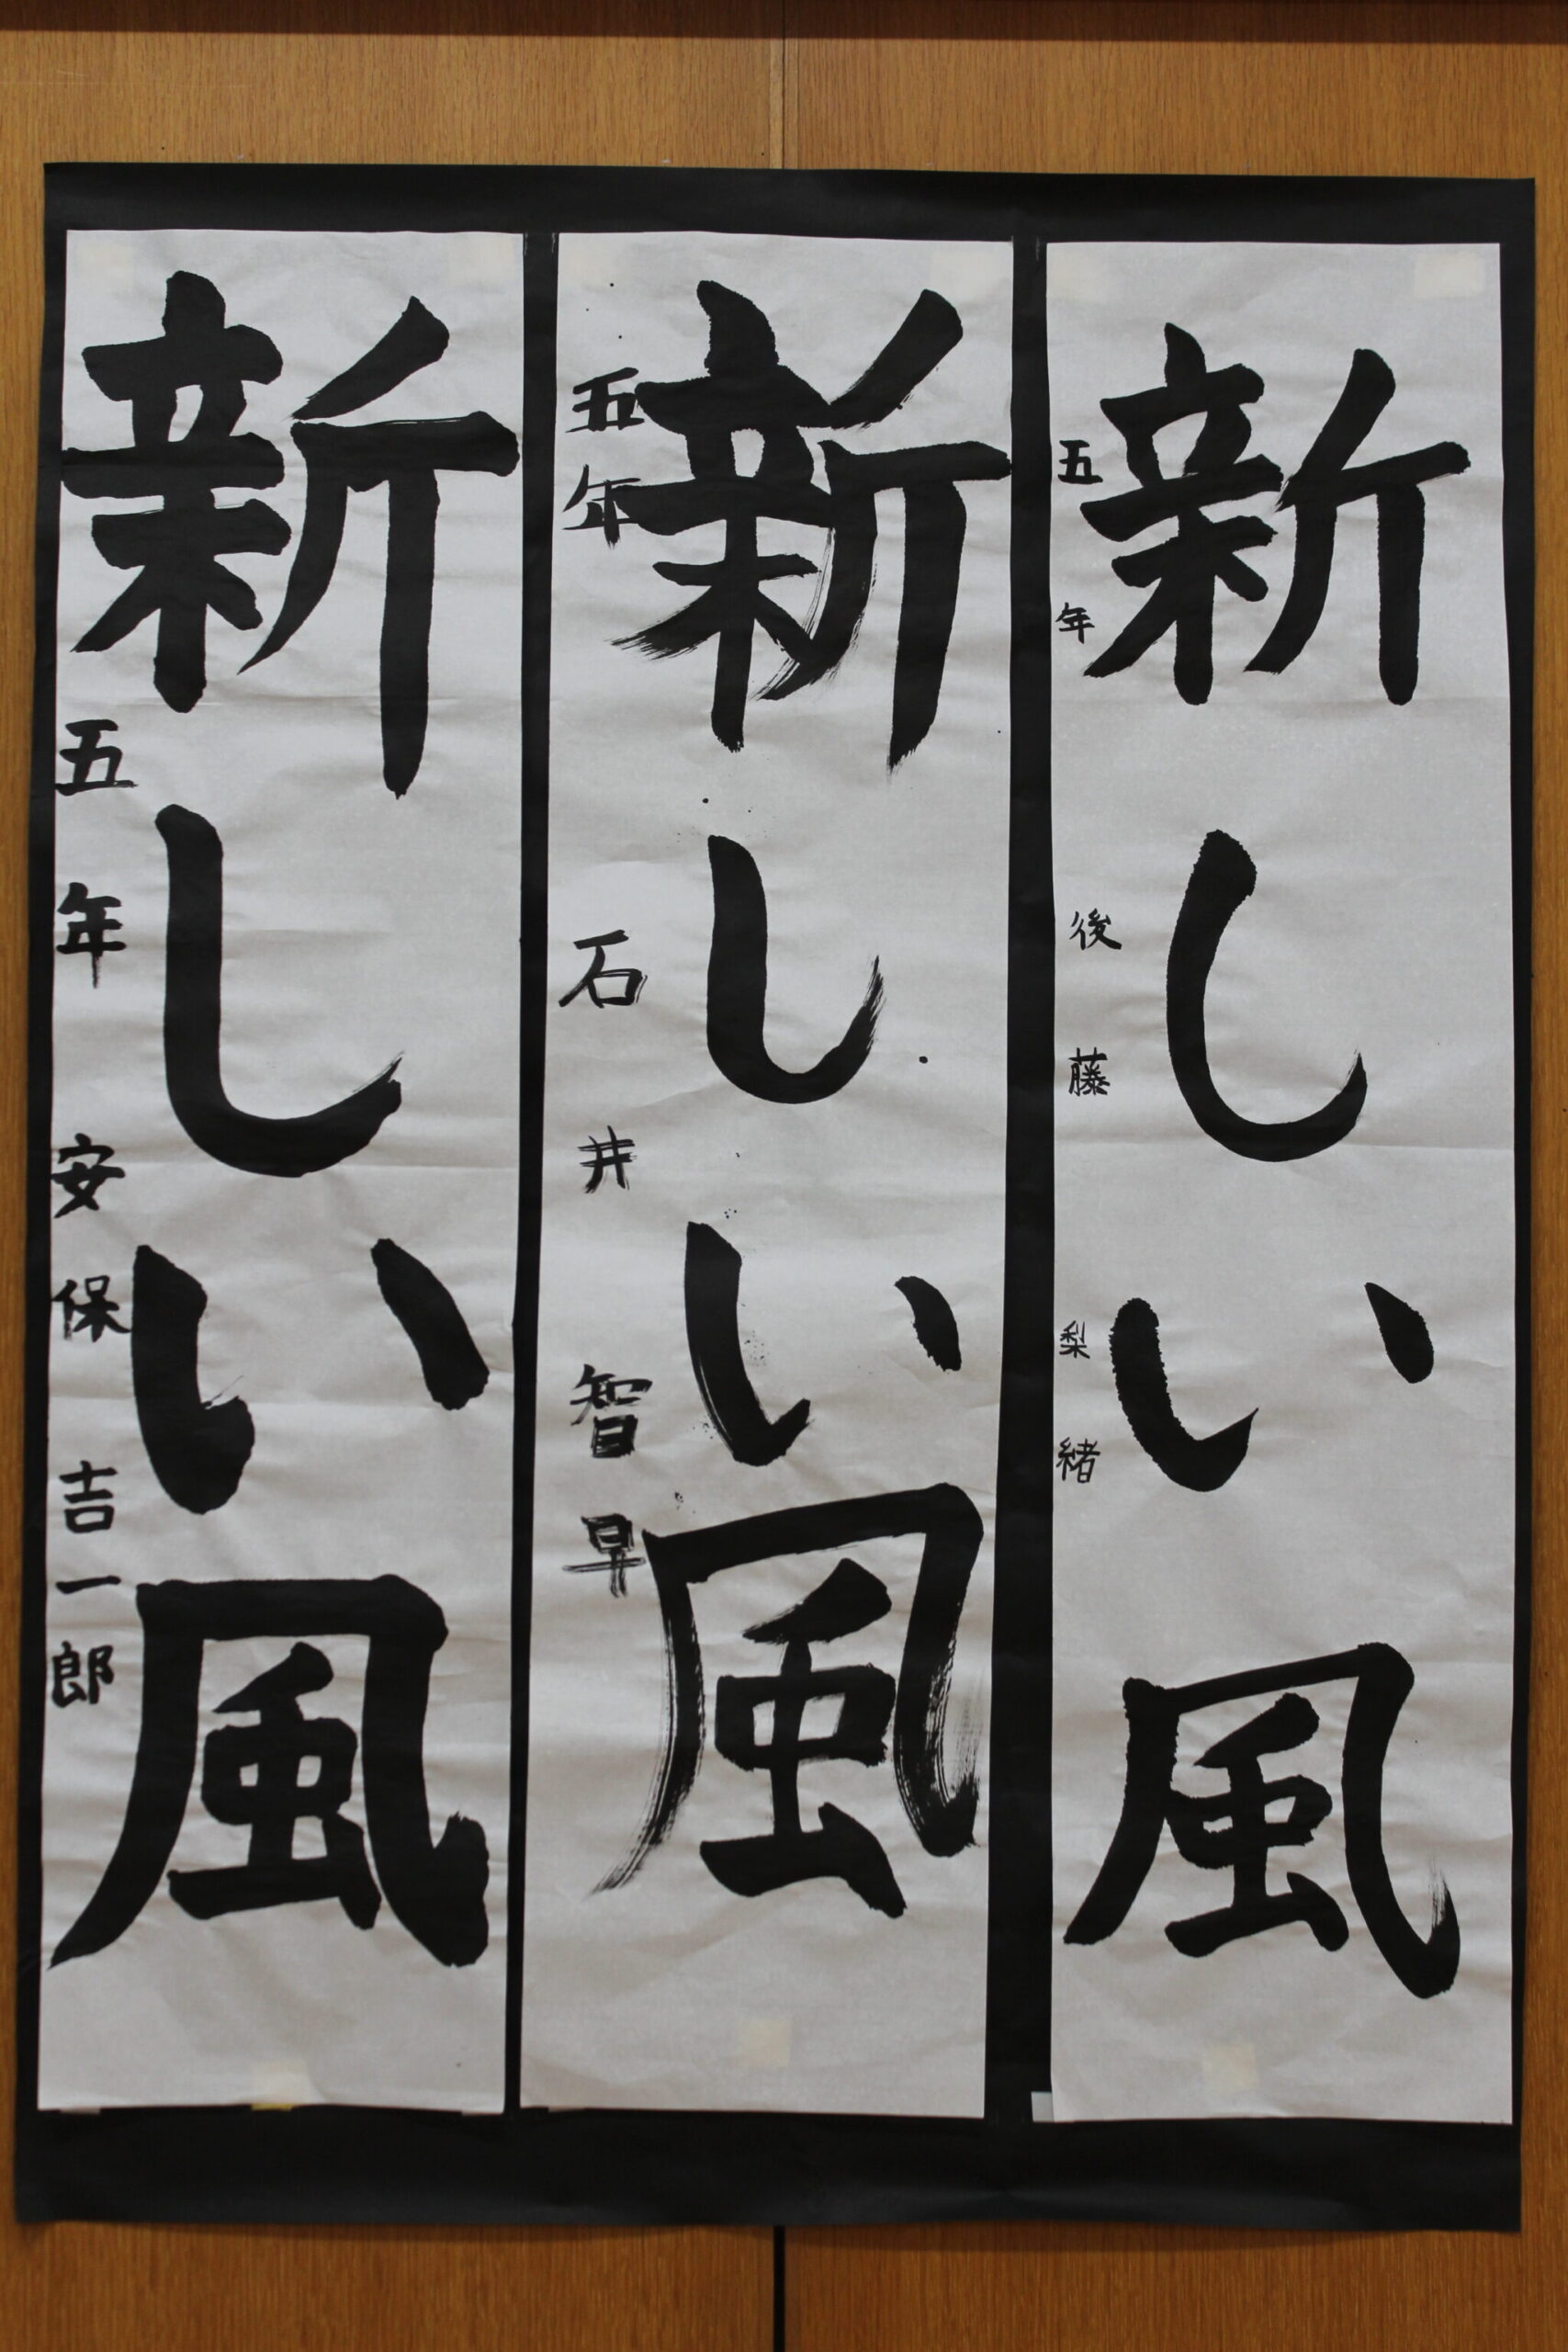 新しい風
五年 後藤 梨緒
新しい風
五年 石井 智早
新しい風
五年 安保 吉一郎